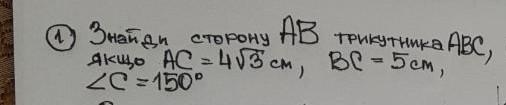 ① Знайди сторону AB трикутника ABC,
якщо AC = 4√3 см, BC = 5 см,
∠C = 150°